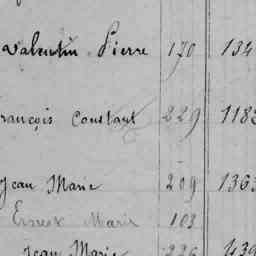 Valentin Pierre 170 134
François Constant 229 1183
Jean Marie 209 1363
Ernest Marie 103
Jean Marie 226 439